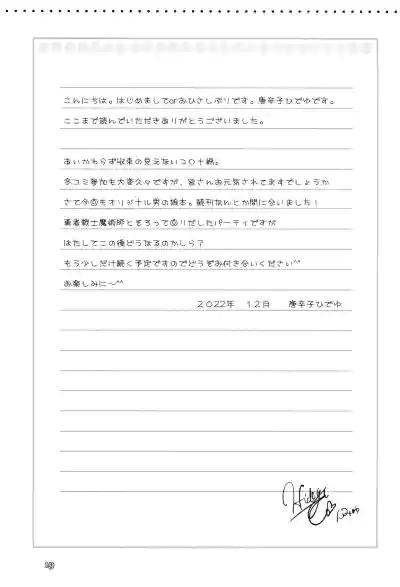 こんにちは。はじめましてorおひさしぶりです。唐辛子ひでゆです。
ここまで読んでいただきありがとうございました。
あいかわらず収束の見えないコロナ禍。
冬コミ参加も大変久々ですが、皆さんお元気されてますでしょうか
さて今回もオリジナル男の娘本。続刊なんとか間に合いました!
勇者戦士魔術師とそろって回りだしたパーティですが
はたしてこの後どうなるのかしら?
もう少しだけ続く予定ですのでどうぞお付き合いください^^
お楽しみに〜^^
2022年 12月 唐辛子ひでゆ
19